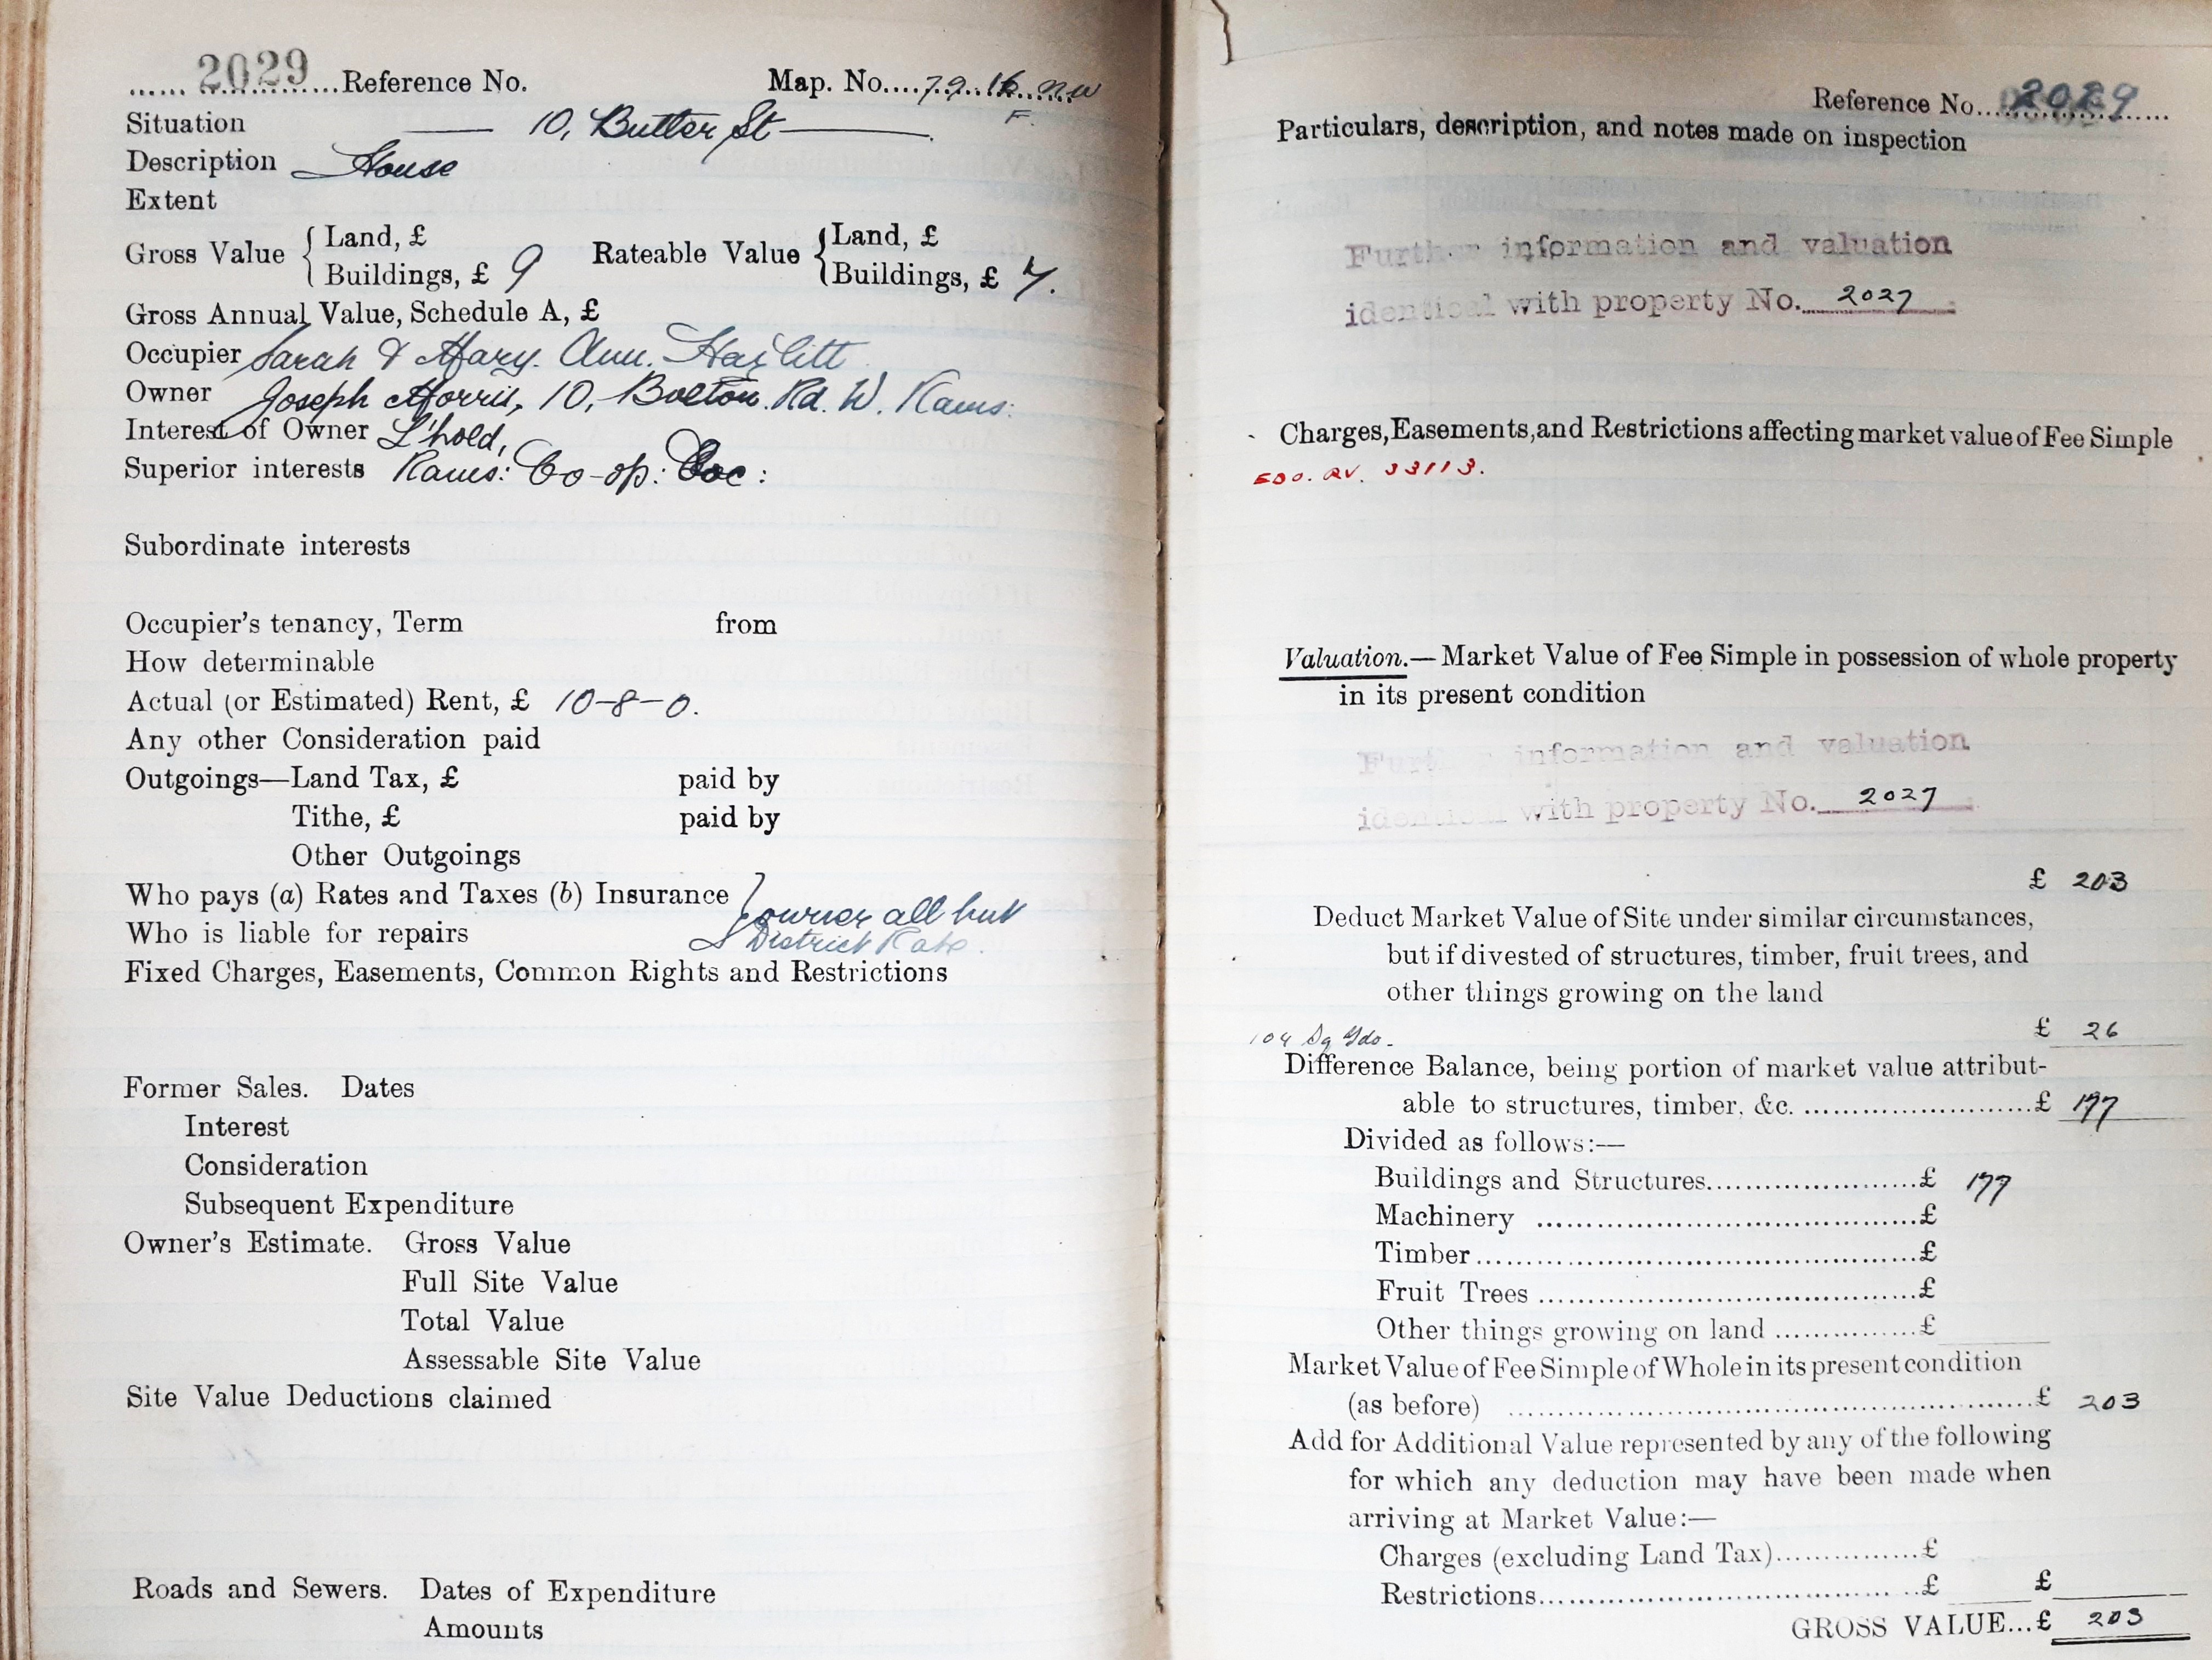 ...... 2029 ...Reference No. Map. No....79.16.NW
F.
Situation —— 10, Butter St ——.
Description House
Extent
Gross Value { Land, £ Rateable Value { Land, £
Buildings, £ 9 Buildings, £ 7.
Gross Annual Value, Schedule A, £
Occupier Sarah & Mary. Ann. Hazlitt
Owner Joseph Morris, 10, Bolton. Rd. W. Rams:
Interest of Owner L'hold,
Superior interests Rams: Co-op: Soc:
Subordinate interests
Occupier's tenancy, Term from
How determinable
Actual (or Estimated) Rent, £ 10-8-0.
Any other Consideration paid
Outgoings—Land Tax, £ paid by
Tithe, £ paid by
Other Outgoings
Who pays (a) Rates and Taxes (b) Insurance } owner all but
Who is liable for repairs District Rate.
Fixed Charges, Easements, Common Rights and Restrictions
Former Sales. Dates
Interest
Consideration
Subsequent Expenditure
Owner's Estimate. Gross Value
Full Site Value
Total Value
Assessable Site Value
Site Value Deductions claimed
Roads and Sewers. Dates of Expenditure
Amounts
Reference No... 2029
Particulars, description, and notes made on inspection
Further information and valuation
identical with property No. 2027
Charges, Easements, and Restrictions affecting market value of Fee Simple
33113.
Valuation.—Market Value of Fee Simple in possession of whole property
in its present condition
Further information and valuation
identical with property No. 2027
£ 203
Deduct Market Value of Site under similar circumstances,
but if divested of structures, timber, fruit trees, and
other things growing on the land
104 Sq Yds. £ 26
Difference Balance, being portion of market value attribut-
able to structures, timber, &c. ..........£ 177
Divided as follows:—
Buildings and Structures..........£ 177
Machinery ..........£
Timber..........£
Fruit Trees ..........£
Other things growing on land ..........£
Market Value of Fee Simple of Whole in its present condition
(as before) ..........£ 203
Add for Additional Value represented by any of the following
for which any deduction may have been made when
arriving at Market Value:—
Charges (excluding Land Tax)..........£
Restrictions..........£ £
GROSS VALUE...£ 203